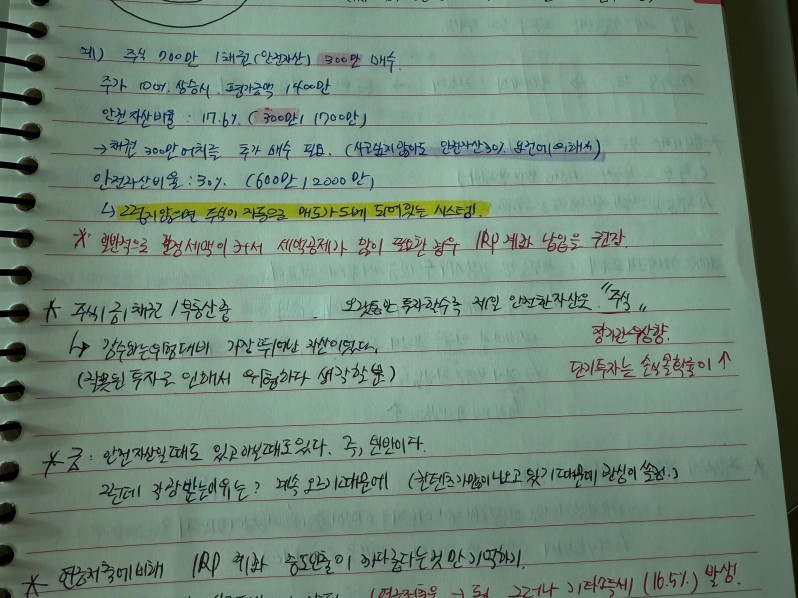 예) 주식 700만 / 채권(안전자산) 300만 매수.
주가 100% 상승시 평가금액 1400만
안전자산비율 : 17.6% (300만/1700만)
→ 채권 300만어치를 추가 매수 필요. (사고싶지않아도 안전자산30% 요건에 의해서)
안전자산비율 : 30%. (600만/2000만)
↳ 그렇지않으면 주식이 자동으로 매도가 되게 되어있는 시스템!
* 일반적으로 결정세액이 커서 세액공제가 많이 필요한 경우 IRP 계좌 납입을 권장.
* 주식/금/채권/부동산 중 오랫동안 투자할수록 제일 안전한 자산은 "주식"
↳ 감수하는 위험대비 가장 뛰어난 자산이었다. 장기간 우상향.
(잘못된 투자로 인해서 위험하다 생각할 뿐) 단기투자는 손실볼확률이 ↑
* 금 : 안전자산일때도 있고 아닐때도 있다. 즉,
그런데 각광받는이유는? 계속 오르기때문에 (컨텐츠가많이나오고 있기때문에 관심이 쏠림.)
* 연금저축에 비해 IRP 계좌 중도인출이 까다롭다는것만 기억하기.
(연금저축은 → 그러나 기타소득세 (16.5%) 발생.